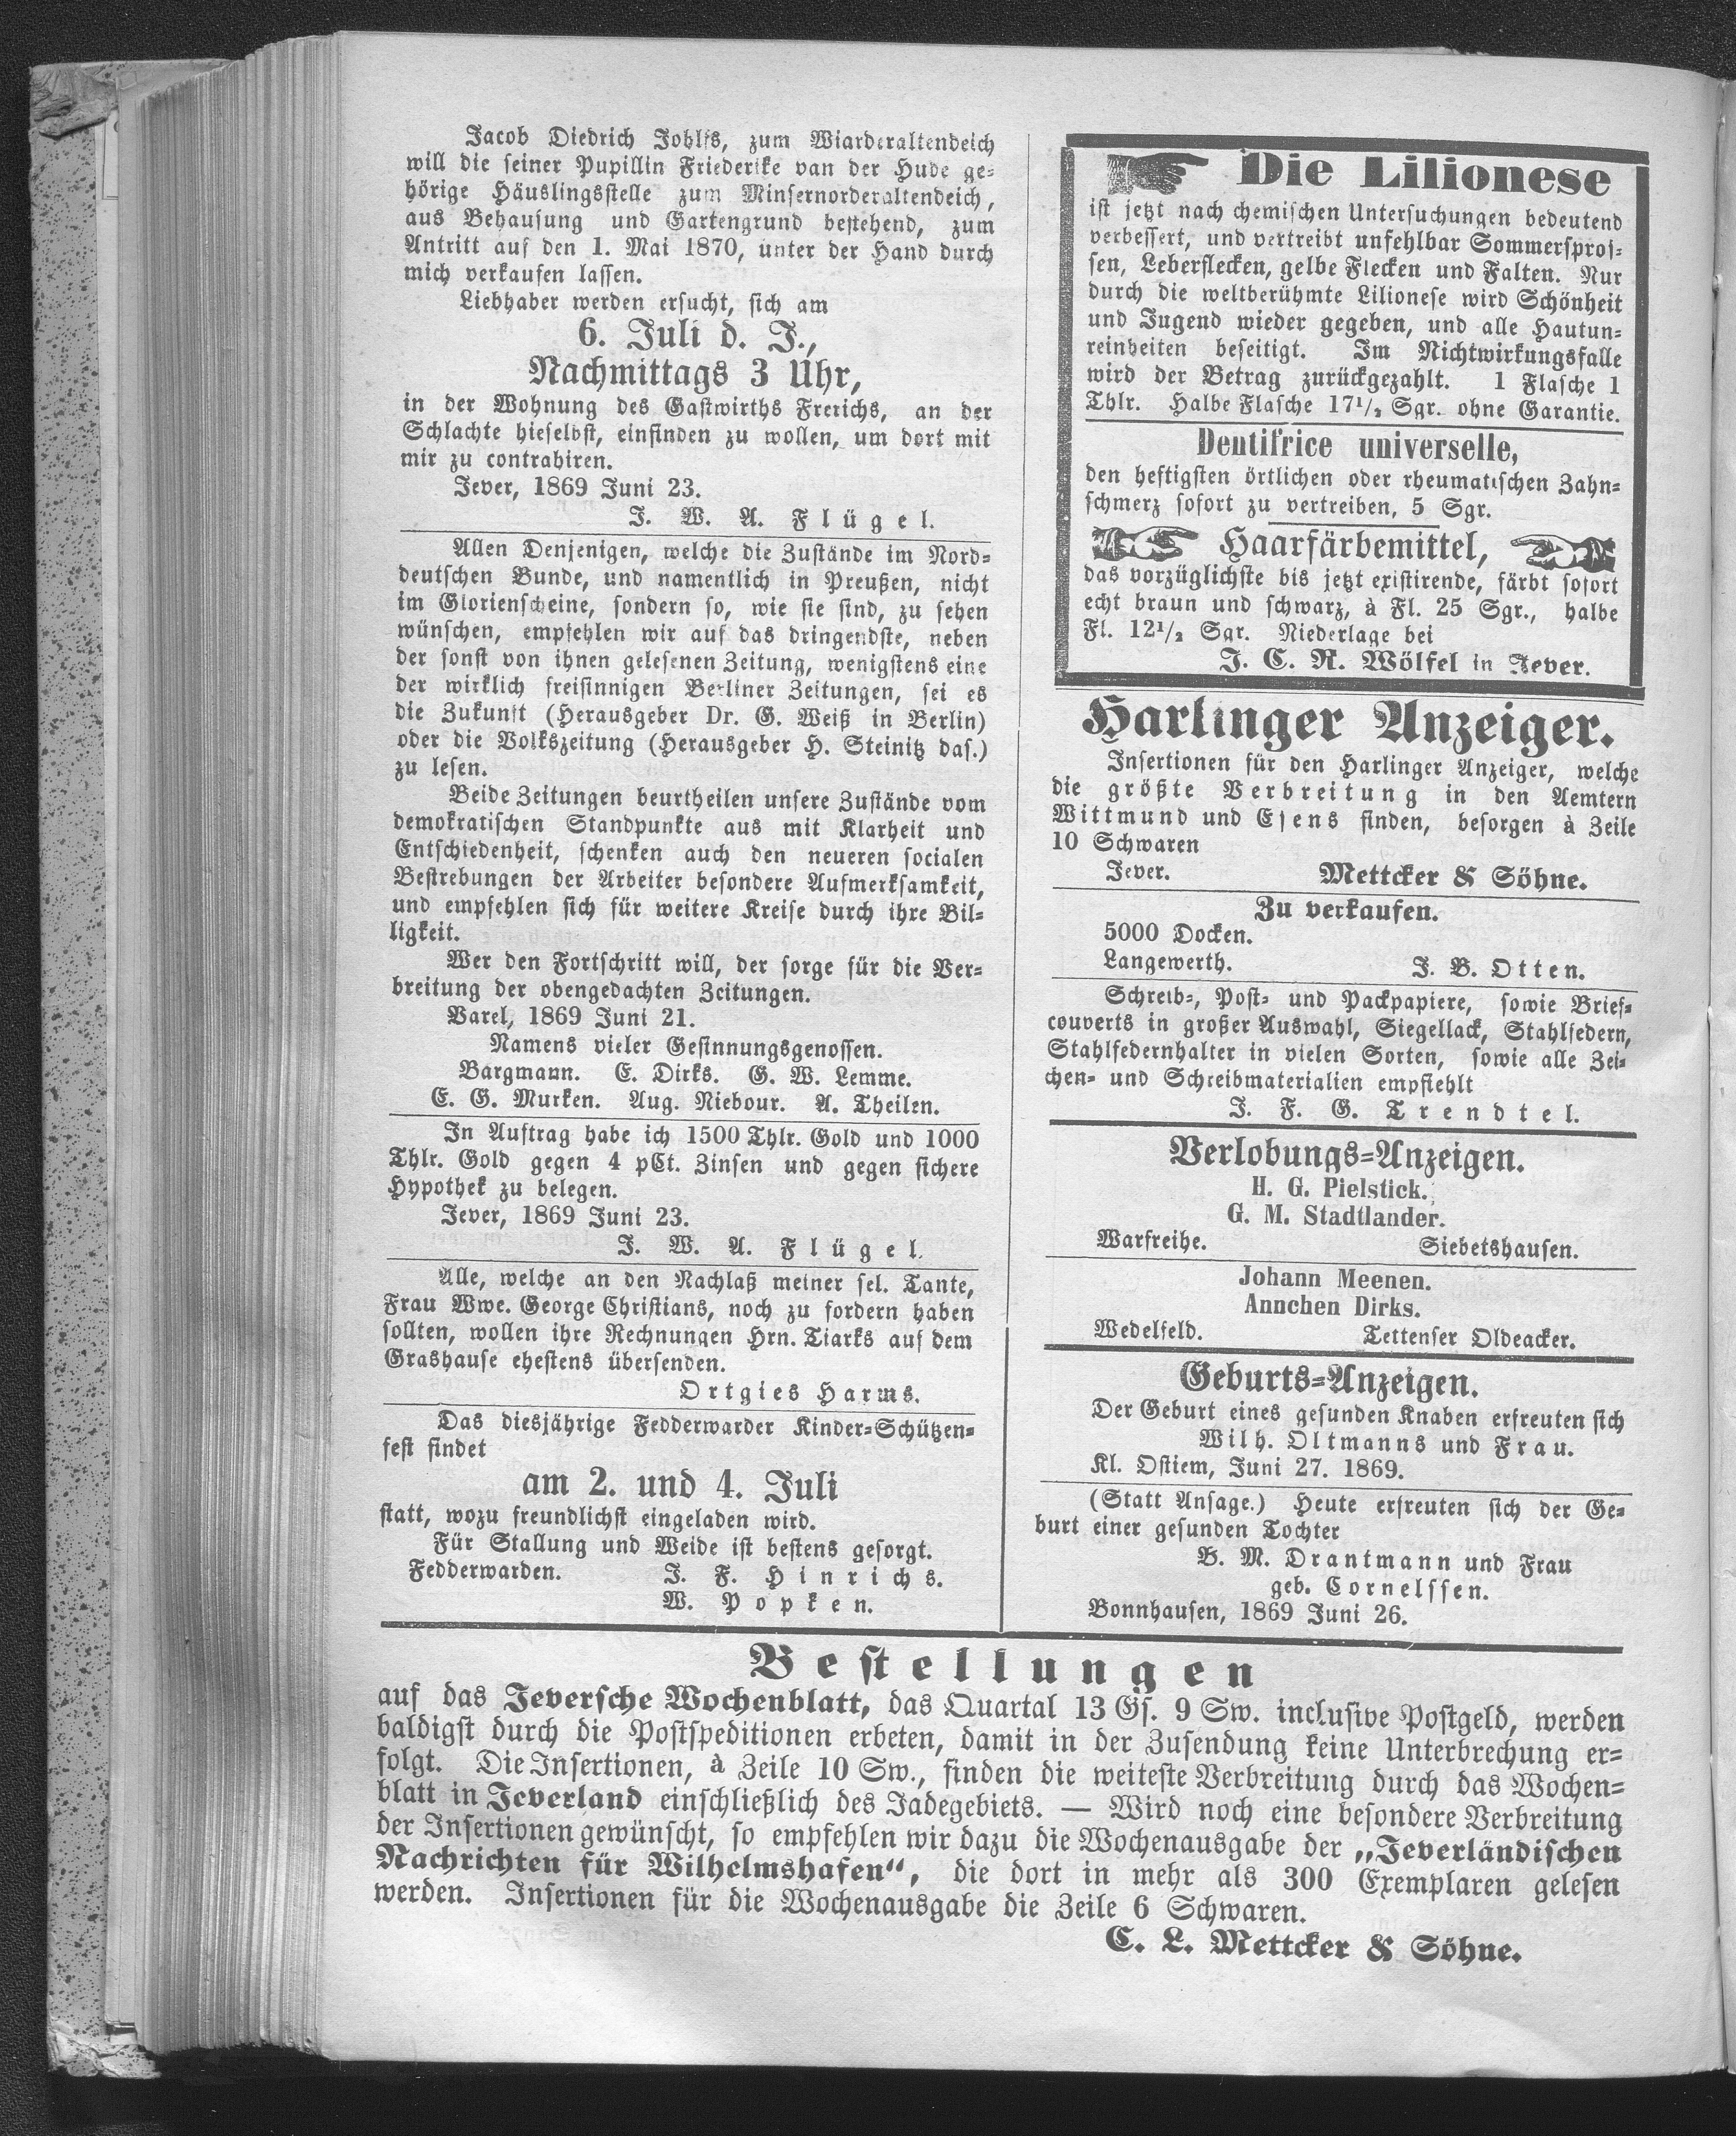 Jacob Diedrich Johlfs, zum Wiarderaltendeich
will die seiner Pupillin Friederike van der Hude ge-
hörige Häuslingsstelle zum Minsernorderaltendeich,
aus Behausung und Gartengrund bestehend, zum
Antritt auf den 1. Mai 1870, unter der Hand durch
mich verkaufen lassen.
Liebhaber werden ersucht, sich am
6. Juli d. J.,
Nachmittags 3 Uhr,
in der Wohnung des Gastwirths Frerichs, an der
Schlachte hieselbst, einfinden zu wollen, um dort mit
mir zu contrahiren.
Jever, 1869 Juni 23.
J. W. A. Flügel.
Allen Denjenigen, welche die Zustände im Nord-
deutschen Bunde, und namentlich in Preußen, nicht
im Glorienscheine, sondern so, wie sie sind, zu sehen
wünschen, empfehlen wir auf das dringendste, neben
der sonst von ihnen gelesenen Zeitung, wenigstens eine
der wirklich freisinnigen Berliner Zeitungen, sei es
die Zukunft (Herausgeber Dr. G. Weiß in Berlin)
oder die Volkszeitung (Herausgeber H. Steinitz das.)
zu lesen.
Beide Zeitungen beurtheilen unsere Zustände vom
demokratischen Standpunkte aus mit Klarheit und
Entschiedenheit, schenken auch den neueren socialen
Bestrebungen der Arbeiter besondere Aufmerksamkeit,
und empfehlen sich für weitere Kreise durch ihre Bil-
ligkeit.
Wer den Fortschritt will, der sorge für die Ver-
breitung der obengedachten Zeitungen.
Varel, 1869 Juni 21.
Namens vieler Gesinnungsgenossen.
Bargmann. E. Dirks. G. W. Lemme.
E. G. Murken. Aug. Niebour. A. Theilen.
In Auftrag habe ich 1500 Thlr. Gold und 1000
Thlr. Gold gegen 4 pCt. Zinsen und gegen sichere
Hypothek zu belegen.
Jever, 1869 Juni 23.
J. W. A. Flügel.
Alle, welche an den Nachlaß meiner sel. Tante,
Frau Wwe. George Christians, noch zu fordern haben
sollten, wollen ihre Rechnungen Hrn. Tiarks auf dem
Grashause ehestens übersenden.
Ortgies Harms.
Das diesjährige Fedderwarder Kinder-Schützen-
fest findet
am 2. und 4. Juli
statt, wozu freundlichst eingeladen wird.
Für Stallung und Weide ist bestens gesorgt.
Fedderwarden. J. F. Hinrichs.
W. Popken.
Die Lilionese
ist jetzt nach chemischen Untersuchungen bedeutend
verbessert, und vertreibt unfehlbar Sommerspros-
sen, Leberflecken, gelbe Flecken und Falten. Nur
durch die weltberühmte Lilionese wird Schönheit
und Jugend wieder gegeben, und alle Hautun-
reinheiten beseitigt. Im Nichtwirkungsfalle
wird der Betrag zurückgezahlt. 1 Flasche 1
Thlr. Halbe Flasche 17½ Sgr. ohne Garantie.
Dentifrice universelle,
den heftigsten örtlichen oder rheumatischen Zahn-
schmerz sofort zu vertreiben, 5 Sgr.
Haarfärbemittel,
das vorzüglichste bis jetzt existirende, färbt sofort
echt braun und schwarz, à Fl. 25 Sgr., halbe
Fl. 12½ Sgr. Niederlage bei
J. C. R. Wölfel in Jever.
Harlinger Anzeiger.
Insertionen für den Harlinger Anzeiger, welche
die größte Verbreitung in den Aemtern
Wittmund und Esens finden, besorgen à Zeile
10 Schwaren
Jever. Mettcker & Söhne.
Zu verkaufen.
5000 Docken.
Langewerth. J. B. Otten.
Schreib-, Post- und Packpapiere, sowie Brief-
couverts in großer Auswahl, Siegellack, Stahlfedern,
Stahlfedernhalter in vielen Sorten, sowie alle Zei-
chen- und Schreibmaterialien empfiehlt
J. F. G. Trendtel.
Verlobungs-Anzeigen.
H. G. Pielstick.
G. M. Stadtlander.
Warfreihe. Siebetshausen.
Johann Meenen.
Annchen Dirks.
Wedelfeld. Tettenser Oldeacker.
Geburts-Anzeigen.
Der Geburt eines gesunden Knaben erfreuten sich
Wilh. Oltmanns und Frau.
Kl. Ostiem, Juni 27. 1869.
(Statt Ansage.) Heute erfreuten sich der Ge-
burt einer gesunden Tochter
B. M. Drantmann und Frau
geb. Cornelssen.
Bonnhausen, 1869 Juni 26.
Bestellungen
auf das Jeversche Wochenblatt, das Quartal 13 Gs. 9 Sw. inclusive Postgeld, werden
baldigst durch die Postspeditionen erbeten, damit in der Zusendung keine Unterbrechung er-
folgt. Die Insertionen, à Zeile 10 Sw., finden die weiteste Verbreitung durch das Wochen-
blatt in Jeverland einschließlich des Jadegebiets. — Wird noch eine besondere Verbreitung
der Insertionen gewünscht, so empfehlen wir dazu die Wochenausgabe der „Jeverländischen
Nachrichten für Wilhelmshafen“, die dort in mehr als 300 Exemplaren gelesen
werden. Insertionen für die Wochenausgabe die Zeile 6 Schwaren.
C. L. Mettcker & Söhne.